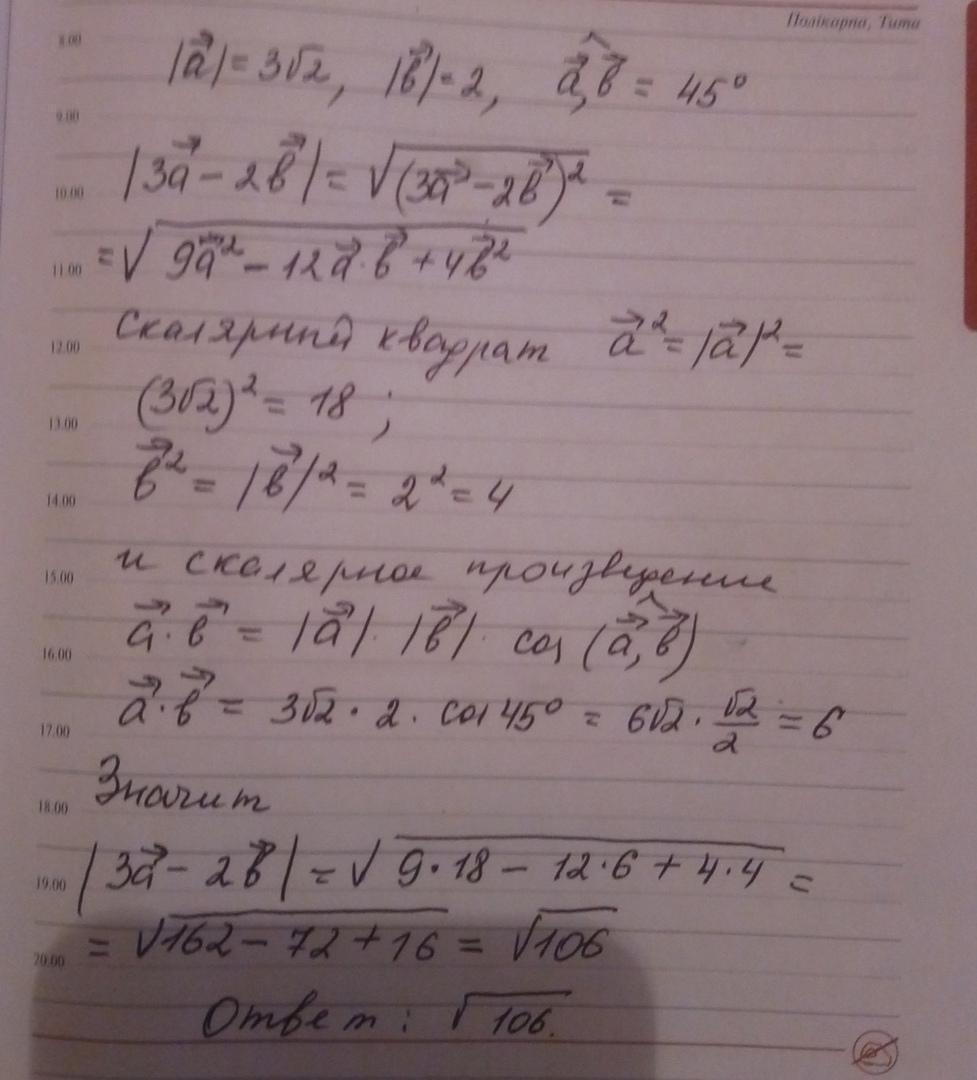 Полікарпа, Тита
8.00
|a⃗| = 3√2, |b⃗| = 2, a⃗,b⃗ = 45°
9.00
|3a⃗ - 2b⃗| = √(3a⃗ - 2b⃗)² =
10.00
= √9a⃗² - 12a⃗·b⃗ + 4b⃗²
11.00
скалярный квадрат a⃗² = |a⃗|² =
12.00
(3√2)² = 18 ;
13.00
b⃗² = |b⃗|² = 2² = 4
14.00
и скалярное произведение
15.00
a⃗·b⃗ = |a⃗|·|b⃗|· cos (a⃗,b⃗)
16.00
a⃗·b⃗ = 3√2 · 2 · cos 45° = 6√2 · √2/2 = 6
17.00
Значит
18.00
|3a⃗ - 2b⃗| = √9·18 - 12·6 + 4·4 =
19.00
= √162 - 72 + 16 = √106
20.00
Ответ: √106.